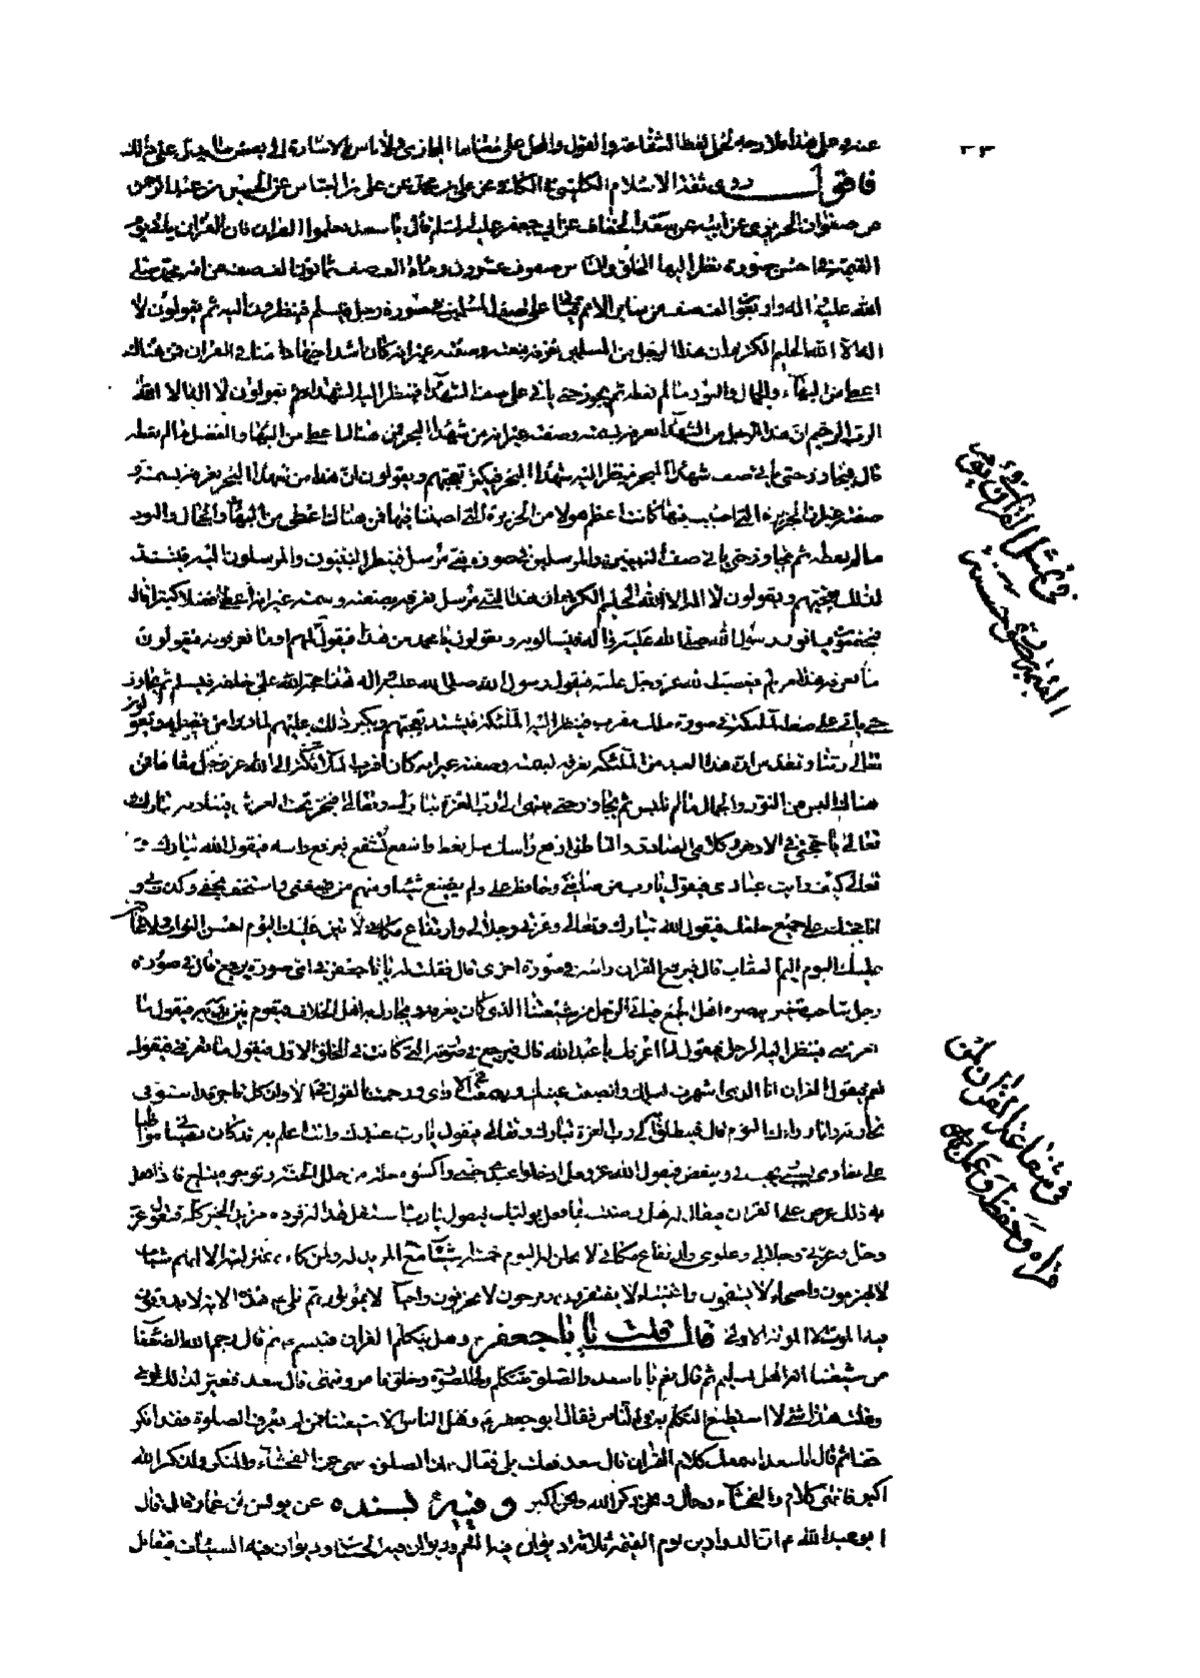 ٣٣
عز وجل هذا فلا وجه لحمل لفظ الشفاعة والقول والحل على معناها المجازي ولا باس بالاشارة الى بعض ما يدل على ذلك
فاقول روى ثقة الاسلام الكليني في الكافي عن علي بن محمد عن علي بن العباس عن الحسين بن عبد الرحمن
عن صفوان الحريري عن ابيه عن سعد الخفاف عن ابي جعفر عليه السلام قال يا سعد تعلموا القران فان القران ياتي يوم
القيمة في احسن صورة نظر اليها الخلق والناس صفوف عشرون وماة الف صف ثمانون الف صف من امة محمد صلى
الله عليه واله واربعون الف صف من ساير الامم فياتي على صف المسلمين في صورة رجل فيسلم فينظرون اليه ثم يقولون لا
اله الا الله الحليم الكريم ان هذا الرجل من المسلمين نعرفه بنعته وصفته غير انه كان اشد اجتهادا منا في القران فمن هناك
اعطي من البهاء والجمال والنور ما لم نعطه ثم يجوز حتى ياتي على صف الشهداء فينظر اليه الشهداء ثم يقولون لا اله الا الله
الرب الرحيم ان هذا الرجل من الشهداء نعرفه بسمته وصفته غير انه من شهداء البحر فمن هناك اعطي من البهاء والفضل ما لم نعطه
قال فيتجاوز حتى ياتي صف شهداء البحر فينظر اليه شهداء البحر فيكثر تعجبهم ويقولون ان هذا من شهداء البحر نعرفه بسمته و
صفته غير ان الجزيرة التي اصيب فيها كانت اعظم هولا من الجزيرة التي اصبنا فيها فمن هناك اعطي من البهاء والجمال والنور
ما لم نعطه ثم يجاوز حتى ياتي صف النبيين والمرسلين في صورة نبي مرسل فينظر النبيون والمرسلون اليه فيشتد
لذلك تعجبهم ويقولون لا اله الا الله الحليم الكريم ان هذا النبي مرسل نعرفه بصفته وسمته غير انه اعطي فضلا كثيرا قال
فيجتمعون فياتون رسول الله صلى الله عليه واله فيسالونه ويقولون يا محمد من هذا فيقول لهم اوما تعرفونه فيقولون
ما نعرفه هذا ممن لم يغضب الله عز وجل عليه فيقول رسول الله صلى الله عليه واله هذا حجة الله على خلقه فيسلم ثم يجاوز
حتى ياتي على صف الملائكة في صورة ملك مقرب فينظر اليه الملئكة فيشتد تعجبهم ويكبر ذلك عليهم لما راوا من فضله ويقولون
تعالى ربنا وتقدس ان هذا العبد من الملئكة نعرفه بسمته وصفته غير انه كان اقرب الملائكة الى الله عز وجل مقاما فمن
هناك البس من النور والجمال ما لم نلبس ثم يجاوز حتى ينتهي الى رب العزة تبارك وتعالى فيخر تحت العرش فيناديه تبارك و
تعالى يا حجتي في الارض وكلامي الصادق الناطق ارفع راسك سل تعط واشفع تشفع فيرفع راسه فيقول الله تبارك و
تعالى كيف رايت عبادي فيقول يا رب منهم من صانني وحافظ علي ولم يضيع شيئا ومنهم من ضيعني واستخف بحقي وكذب بي و
انا حجتك على جميع خلقك فيقول الله تبارك وتعالى وعزتي وجلالي وارتفاع مكاني لاثيبن عليك اليوم احسن الثواب ولاعاقبن
عليك اليوم اليم العقاب قال فيرجع القران راسه في صورة اخرى قال فقلت له يا ابا جعفر في اي صورة يرجع قال في صورة
رجل شاحب متغير يبصره اهل الجمع فياتي الرجل من شيعتنا الذي كان يعرفه ويجادل به اهل الخلاف فيقوم بين يديه فيقول ما
تعرفني فينظر اليه الرجل فيقول ما اعرفك يا عبد الله قال فيرجع في صورته التي كانت في الخلق الاول فيقول ما تعرفني فيقول
نعم فيقول القران انا الذي اسهرت ليلك وانصبت عيشك وسمعت في الاذى ورجمت بالقول في الا وان كل تاجر قد استوفى
تجارته وانا وراءك اليوم قال فينطلق به الى رب العزة تبارك وتعالى فيقول يا رب عبدك وانت اعلم به قد كان نصبا في مواظبا
علي يعادى بسببي ويحب في ويبغض فيقول الله عز وجل ادخلوا عبدي جنتي واكسوه حلة من حلل الجنة وتوجوه بتاج فاذا فعل
به ذلك عرض على القران فيقال له هل رضيت بما فعل بوليك فيقول يا رب استقل هذا له فزده مزيد الخير كله فيقول وعزتي
وجلالي وعلوي وارتفاع مكاني لانحلن له اليوم خمسة اشياء مع المزيد له ولمن كان بمنزلته الا انهم شباب
لا يهرمون واصحاء لا يسقمون واغنياء لا يفتقرون وفرحون لا يحزنون واحياء لا يموتون ثم تلا هذه الاية لا يذوقون
فيها الموت الا الموتة الاولى قال قلت يا ابا جعفر وهل يتكلم القران فتبسم ثم قال رحم الله الضعفاء
من شيعتنا انهم اهل تسليم ثم قال نعم يا سعد والصلوة تتكلم ولها صورة وخلق تامر وتنهى قال سعد فتغير لذلك لوني
وقلت هذا شيء لا استطيع اتكلم به في الناس فقال ابو جعفر وهل الناس الا شيعتنا فمن لم يعرف الصلوة فقد انكر
حقنا ثم قال يا سعد اسمعك كلام القران قال سعد فقلت بلى فقال ان الصلوة تنهى عن الفحشاء والمنكر ولذكر الله
اكبر فالنهي كلام والفحشاء رجال ونحن ذكر الله ونحن اكبر وفيه بسنده عن يونس بن عمار قال قال
ابو عبد الله ع ان الدواوين يوم القيمة ثلاثة ديوان فيه النعم وديوان فيه الحسنات وديوان فيه السيئات فيقابل
في تمثل القران يوم
القيمة بصورة حسنة
في شفاعة القران لمن
قراه وحفظه وعمل به